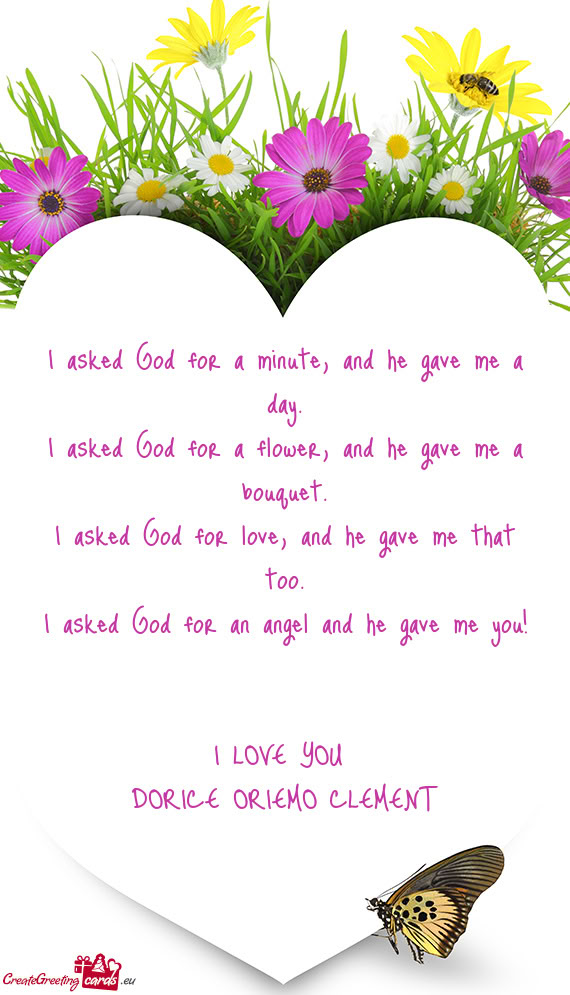 I asked God for a minute, and he gave me a
day.
I asked God for a flower, and he gave me a
bouquet.
I asked God for love, and he gave me that
too.
I asked God for an angel and he gave me you!
I LOVE YOU
DORICE ORIEMO CLEMENT
CreateGreeting cards .eu